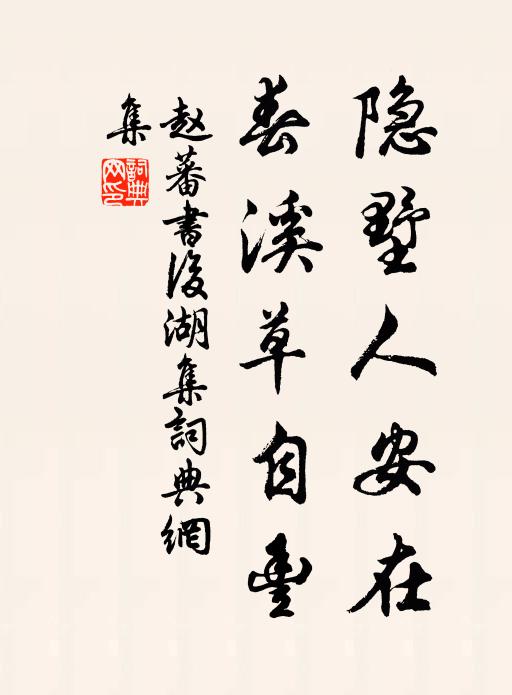 隐墅人安在
春溪草自豊
赵蕃書後湖集詞典網
集
詞典
网印